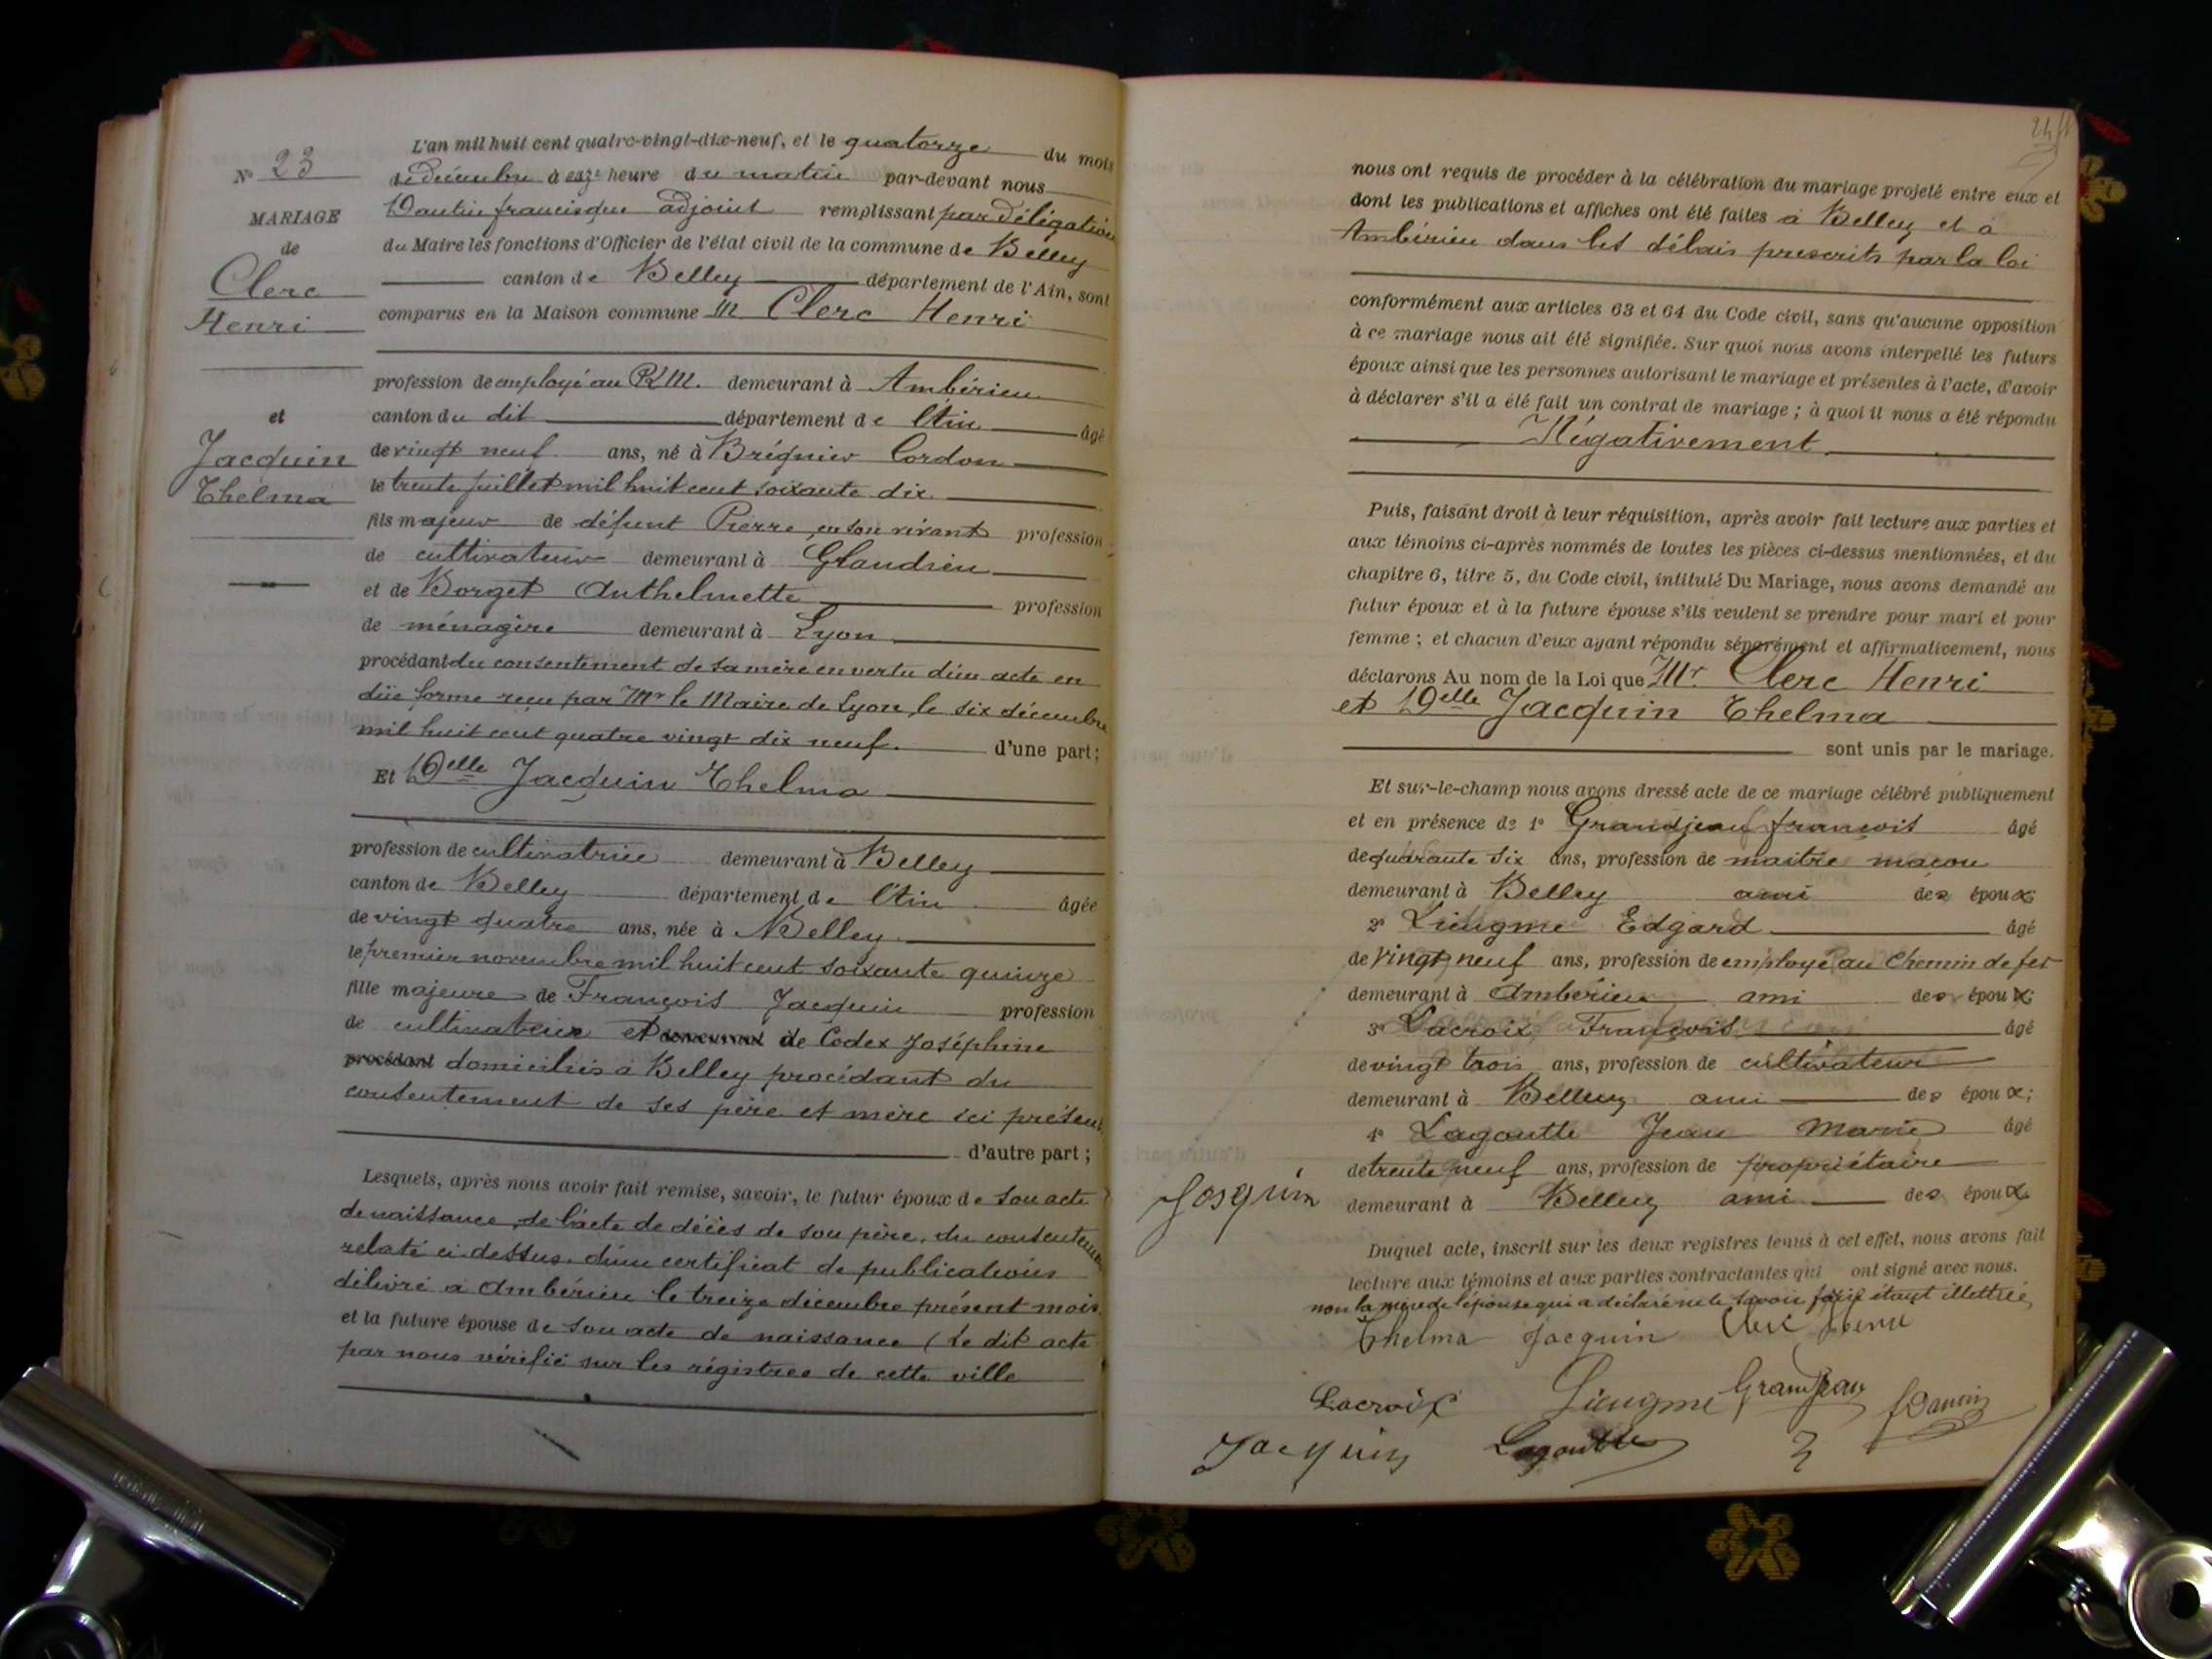 N° 23
MARIAGE
de
Clerc
Henri
et
Jacquin
Thelma
L'an mil huit cent quatre-vingt-dix-neuf, et le quatorze du mois
de décembre à onze heure du matin par-devant nous
Dantin francisque adjoint remplissant par délégation
du Maire les fonctions d'Officier de l'état civil de la commune de Belley
canton de Belley département de l'Ain, sont
comparus en la Maison commune M Clerc Henri
profession de employé au PLM. demeurant à Ambérieu
canton du dit département de l'Ain âgé
de vingt neuf ans, né à Brégnier Cordon
le trente juillet mil huit cent soixante dix
fils majeur de défunt Pierre, en son vivant profession
de cultivateur demeurant à Glandieu
et de Borget Anthelmette profession
de ménagère demeurant à Lyon
procédant du consentement de sa mère en vertu d'un acte en
düe forme reçu par Mr le Maire de Lyon, le six décembre
mil huit cent quatre vingt dix neuf. d'une part;
Et Delle Jacquin Thelma
profession de cultivatrice demeurant à Belley
canton de Belley département de l'Ain âgée
de vingt quatre ans, née à Belley
le premier novembre mil huit cent soixante quinze
fille majeure de François Jacquin profession
de cultivateur et demeurant de Codex Joséphine
procédant domiciliés à Belley procédant du
consentement de ses père et mère ici présents
d'autre part;
Lesquels, après nous avoir fait remise, savoir, le futur époux de son acte
de naissance, de l'acte de décès de son père, du consentement
relaté ci-dessus, d'un certificat de publications
délivré à Ambérieu le treize décembre présent mois.
et la future épouse de son acte de naissance (le dit acte
par nous vérifié sur les régistres de cette ville
nous ont requis de procéder à la célébration du mariage projeté entre eux et
dont les publications et affiches ont été faites à Belley et à
Ambérieu dans les délais prescrits par la loi
conformément aux articles 63 et 64 du Code civil, sans qu'aucune opposition
à ce mariage nous ait été signifiée. Sur quoi nous avons interpellé les futurs
époux ainsi que les personnes autorisant le mariage et présentes à l'acte, d'avoir
à déclarer s'il a été fait un contrat de mariage; à quoi il nous a été répondu
Négativement
Puis, faisant droit à leur réquisition, après avoir fait lecture aux parties et
aux témoins ci-après nommés de toutes les pièces ci-dessus mentionnées, et du
chapitre 6, titre 5, du Code civil, intitulé Du Mariage, nous avons demandé au
futur époux et à la future épouse s'ils veulent se prendre pour mari et pour
femme; et chacun d'eux ayant répondu séparément et affirmativement, nous
déclarons Au nom de la Loi que Mr. Clerc Henri
et Delle Jacquin Thelma
sont unis par le mariage.
Et sur-le-champ nous avons dressé acte de ce mariage célébré publiquement
et en présence de 1° Grandjean françois âgé
de quarante six ans, profession de maitre maçon
demeurant à Belley ami des époux
2° Lieugme Edgard âgé
de vingt neuf ans, profession de employé au Chemin de fer
demeurant à Ambérieu ami des époux;
3° Lacroix François âgé
de vingt trois ans, profession de cultivateur
demeurant à Belley ami des époux;
4° Lagoutte Jean Marie âgé
de trente neuf ans, profession de propriétaire
demeurant à Belley ami des époux
Duquel acte, inscrit sur les deux registres tenus à cet effet, nous avons fait
lecture aux témoins et aux parties contractantes qui ont signé avec nous.
non la mère de l'épouse qui a déclaré ne le savoir faire étant illettrée
Josquin
Thelma Jacquin Clerc Henri
Lacroix Lieugme Grandjean fDantin
Jacquin Lagoutte